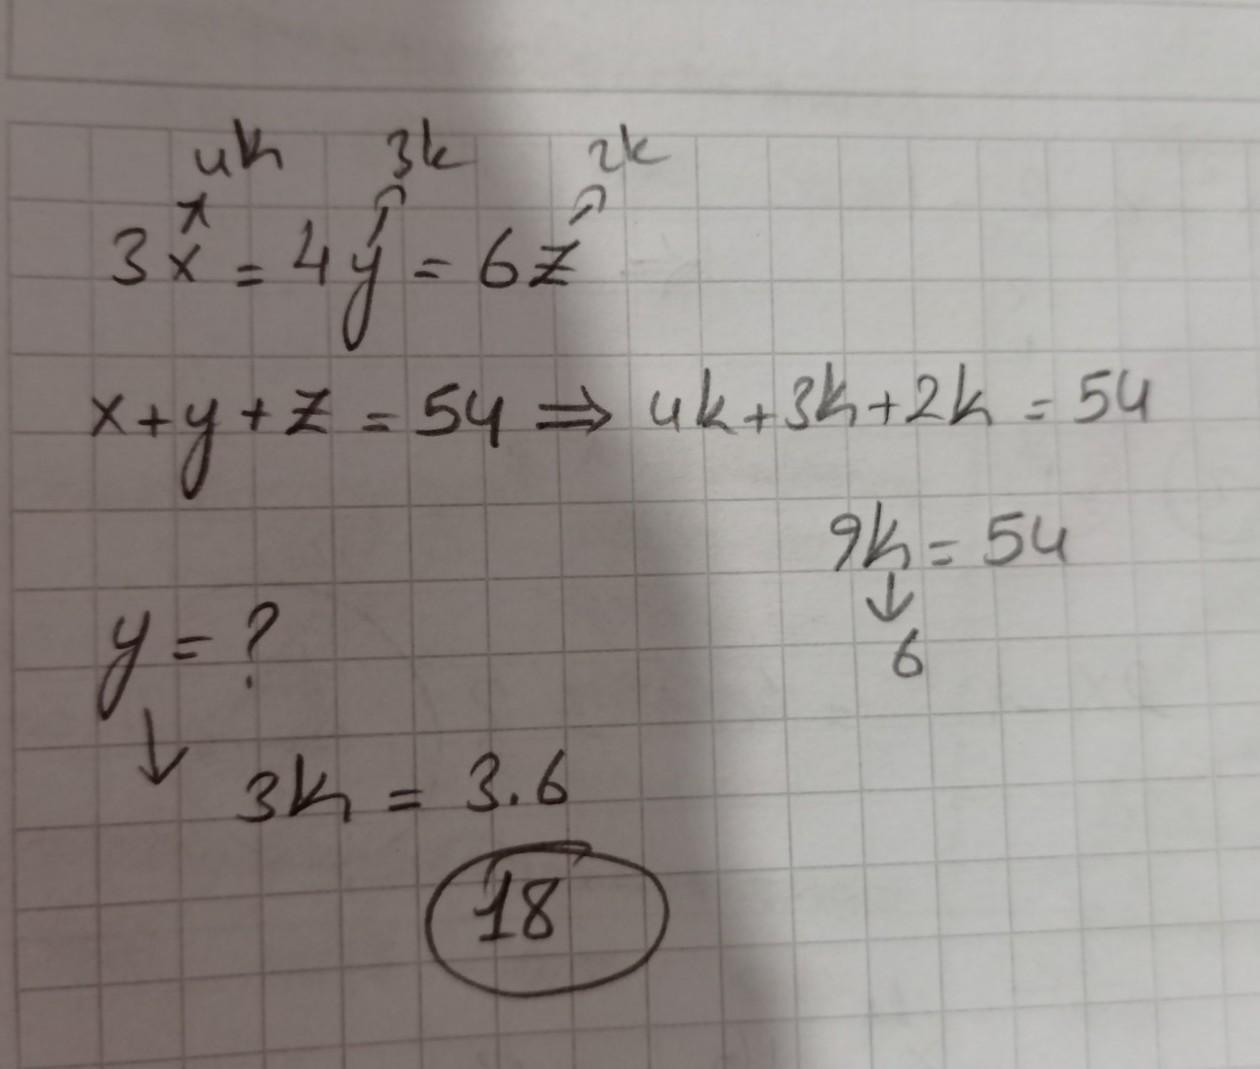 4k 3k 2k
3x = 4y = 6z
x+y+z = 54 ⇒ 4k+3k+2k = 54
9k = 54
↓
6
y = ?
↓ 3k = 3.6
18